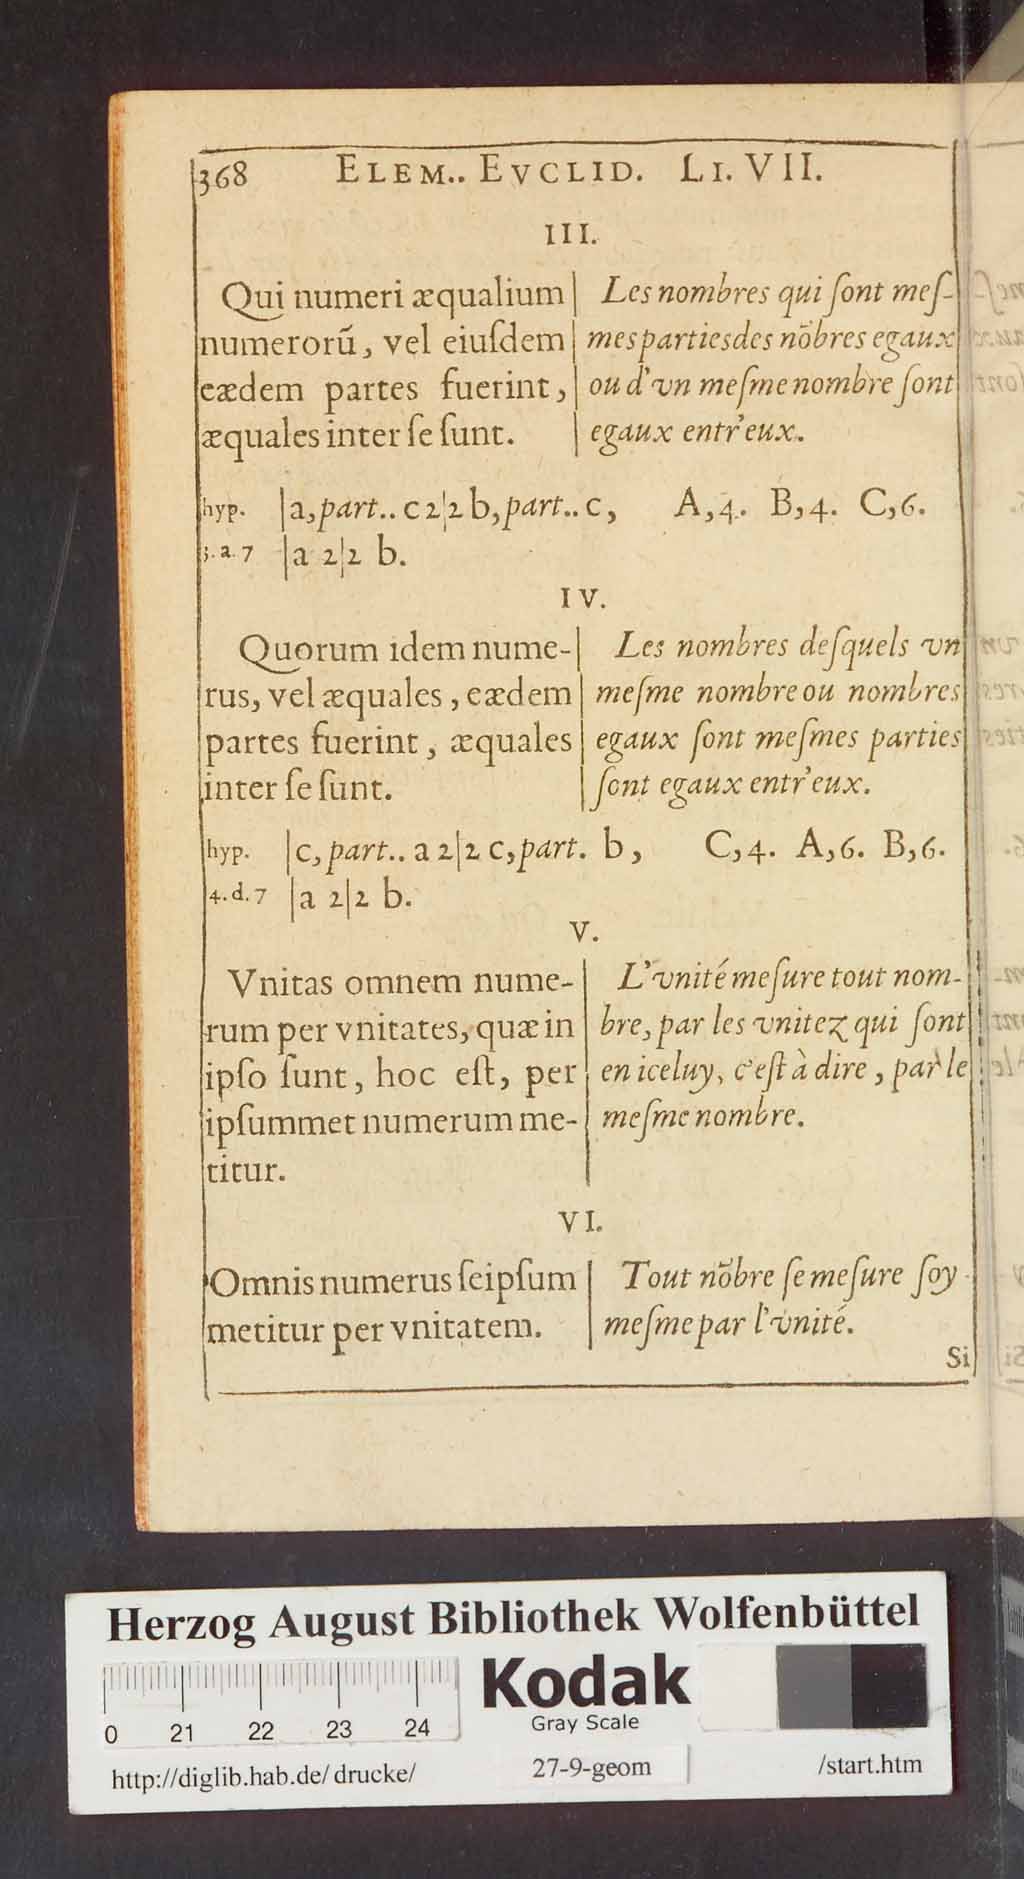 368 ELEM.. EVCLID. LI. VII.
III.
Qui numeri æqualium
numerorũ, vel eiuſdem
eædem partes fuerint,
æquales inter ſe ſunt.
Les nombres qui ſont meſ-
mes parties des nõbres egaux
ou d'vn meſme nombre ſont
egaux entr'eux.
hyp. |a, part.. c 2|2 b, part.. c, A, 4. B, 4. C, 6.
3. a. 7 |a 2|2 b.
IV.
Quorum idem nume-
rus, vel æquales, eædem
partes fuerint, æquales
inter ſe ſunt.
Les nombres deſquels vn
meſme nombre ou nombres
egaux ſont meſmes parties
ſont egaux entr'eux.
hyp. |c, part.. a 2|2 c, part. b, C, 4. A, 6. B, 6.
4. d. 7 |a 2|2 b.
V.
Vnitas omnem nume-
rum per vnitates, quæ in
ipſo ſunt, hoc eſt, per
ipſummet numerum me-
titur.
L'vnité meſure tout nom-
bre, par les vnitez qui ſont
en iceluy, c'eſt à dire, par le
meſme nombre.
VI.
Omnis numerus ſeipſum
metitur per vnitatem.
Tout nõbre ſe meſure ſoy-
meſme par l'vnité.
Si
Herzog August Bibliothek Wolfenbüttel
0 21 22 23 24
Kodak
Gray Scale
http://diglib.hab.de/drucke/ 27-9-geom /start.htm